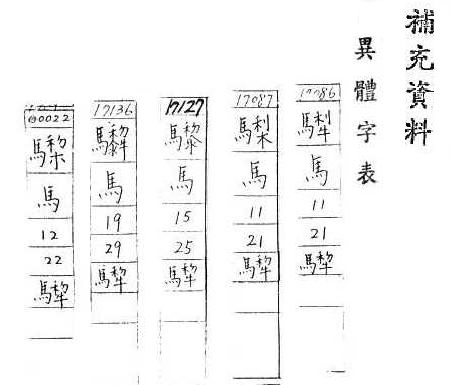 補充資料
異體字表
17086
騹
馬
11
21
騹
17087
馬
11
21
騹
17127
馬
15
25
騹
17136
馬
19
29
騹
00022
馬
12
22
騹